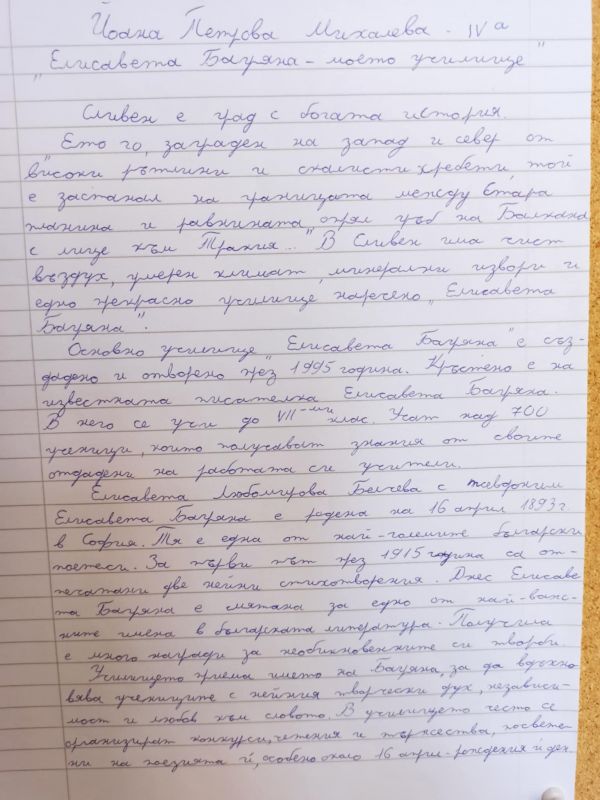 Йоана Петрова Михалева - IV а
"Елисавета Багряна - моето училище"
Сливен е град с богата история.
"Ето го, заграден на запад и север от
високи рътлини и скалисти хребети, той
е застанал на границата между Стара
планина и равнината, орял гръб на Балкана
с лице към Тракия..." В Сливен има чист
въздух, умерен климат, минерални извори и
едно прекрасно училище наречено "Елисавета
Багряна".
Основно училище "Елисавета Багряна" е съз-
дадено и отворено през 1995 година. Кръстено е на
известната писателка Елисавета Багряна.
В него се учи до VII-ми клас. Учат над 700
ученици, които получават знания от своите
отдадени на работата си учители.
Елисавета Любомирова Белчева с псевдоним
Елисавета Багряна е родена на 16 април 1893 г.
в София. Тя е една от най-големите български
поетеси. За първи път през 1915 година са от-
печатани две нейни стихотворения. Днес Елисаве
та Багряна е смятана за едно от най-важ-
ните имена в българската литература. Получила
е много награди за необикновените си творби.
Училището приема името на Багряна, за да вдъхно
вява учениците с нейния творчески дух, независи-
мост и любов към словото. В училището често се
организират конкурси, четения и тържества, посвете-
ни на поезията ѝ, особено около 16 април - рождения ѝ ден.